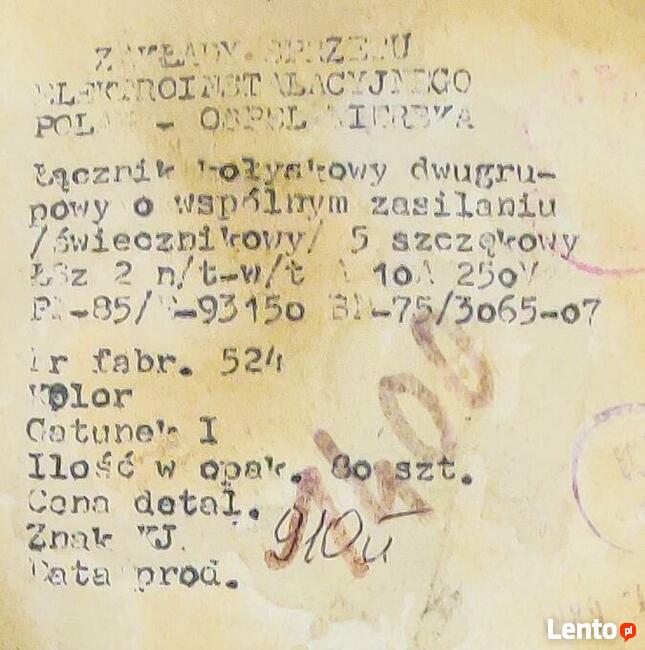 ZAKŁADY SPRZĘTU
ELEKTROINSTALACYJNEGO
POLAM - OSPEL WIERBKA
Łącznik kołyskowy dwugru-
powy o wspólnym zasilaniu
/świecznikowy/ 5 szczękowy
ŁSz 2 n/t-w/t 10A 25oV
PN-85/E-9315o BN-75/3o65-o7
Nr fabr. 524
Kolor
Gatunek I
Ilość w opak. 8o szt.
Cena detal.
Znak KJ
910
Data prod.
Lento.pl